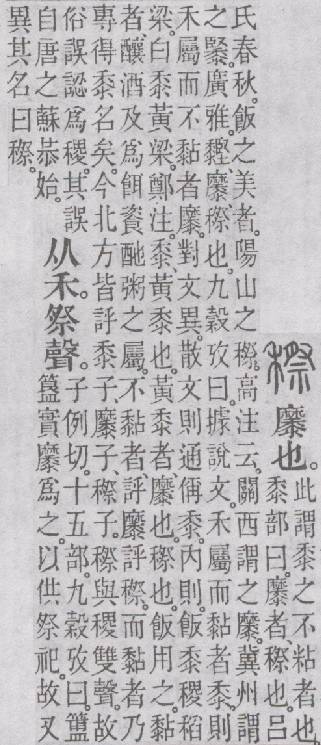 穄 𪎭也。此謂黍之不粘者也。
黍部曰。𪎭者、穄也。呂
氏春秋。飯之美者。陽山之穄。高注云。關西謂之𪎭。冀州謂
之。廣雅。𪎭、穄也。九穀攷曰。據說文。禾屬而黏者黍。則
禾屬而不黏者𪎭。對文異。散文則通偁黍。內則。飯黍稷稻
粱白黍黃粱。鄭注。黍、黃黍也。黃黍者、𪎭也。穄也。飯用之。黏
者、釀酒及爲餌餈酏粥之屬。不黏者、評𪎭評穄。而黏者乃
專得黍名矣。今北方皆評黍子、𪎭子、穄子。穄與稷雙聲。故
俗誤認爲稷。其誤
自唐之蘇恭始。
从禾。祭聲。
子例切。十五部。九穀攷曰。簠
簋實𪎭爲之。以供祭祀。故又
異其名曰穄。